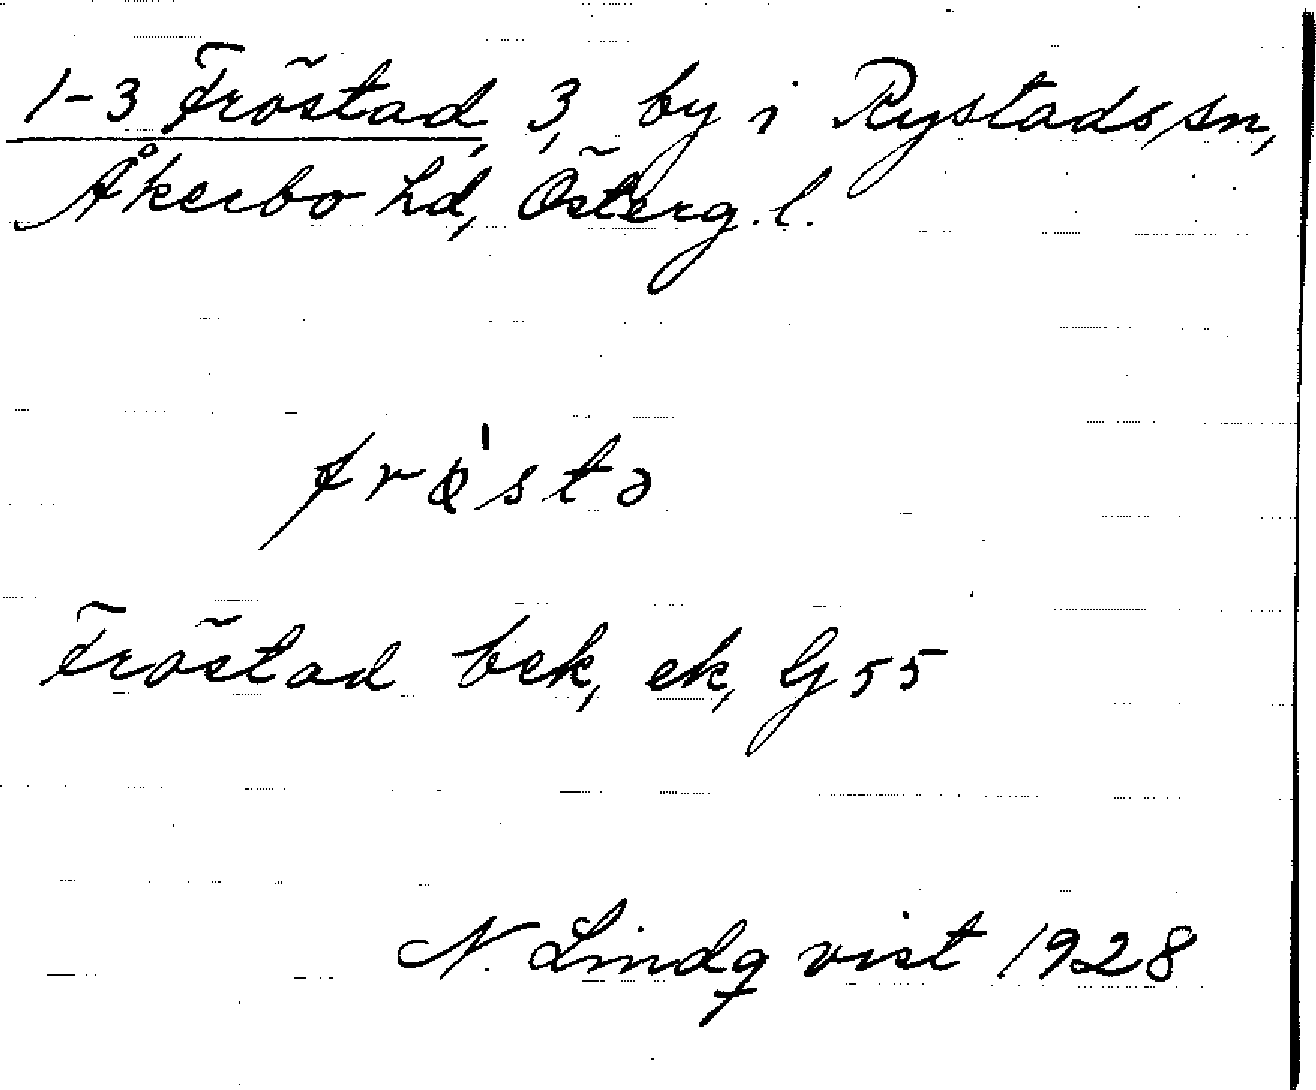 1-3 Fröstad, 3, by i Rystads sn,
Åkerbo hd, Österg. l.
frø̀stə
Fröstad bek, ek, G 55
N. Lindqvist 1928